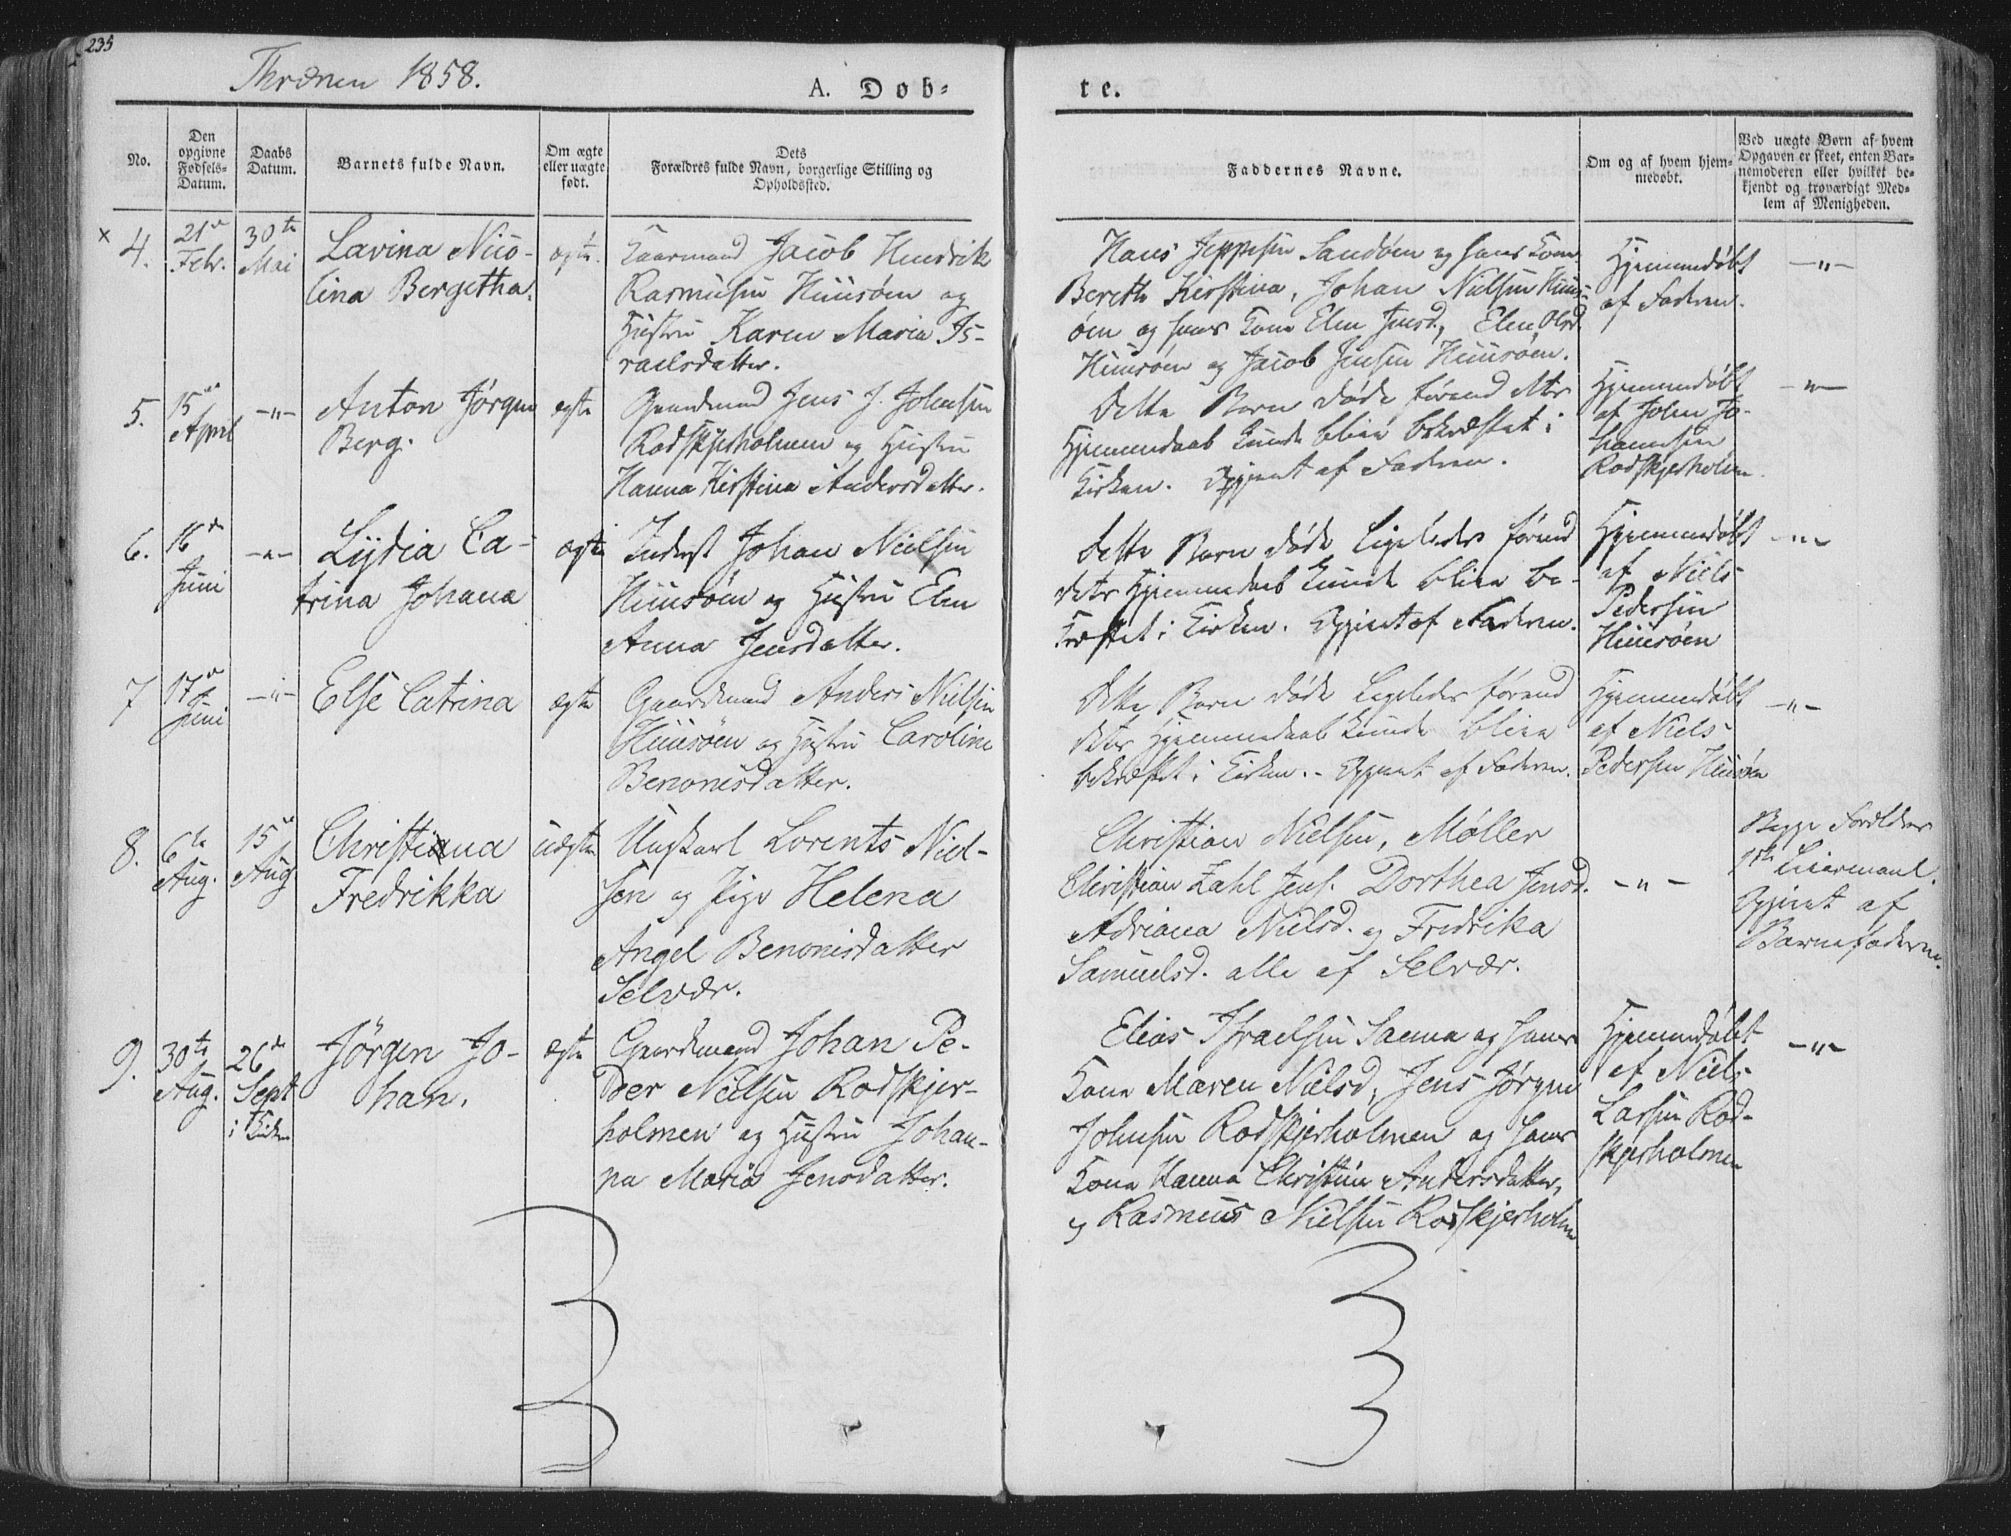 235
Thrænen 1858.
A. Døb-
te.
No.
Den opgivne Fødsels-Datum.
Daabs Datum.
Barnets fulde Navn.
Om ægte eller uægte født.
Dets Forældres fulde Navn, borgerlige Stilling og Opholdssted.
Faddernes Navne.
Om og af hvem hjemmedøbt.
Ved uægte Børn af hvem Opgaven er skeet, enten Barnemoderen eller hvilket bekjendt og troværdigt Medlem af Menigheden.
x 4.
21de
Febr.
30te
Mai
Lavina Nico-
lina Bergetha.
ægte.
Jacob Hendrik
Rasmusen Huusøen og
Hustru Karen Maria Is-
raelsdatter.
Hans Jeppesen Sandøen og hans Kone
Bereth Kirstina, Johan Nielsen Huus-
øen og hans Kone Elen Jensd., Elen Olsd.
Huusøen og Jacob Jensen Huusøen.
Hjemmedøbt
af Faderen.
-"-
5.
15de
April
-"-
Anton Jørgen
Berg.
ægte
Gaardmand Jens J. Johnsen
Rodskjerholmen og Hustru
Hanna Kirstina Andersdatter.
Dette Barn døde førend dets
Hjemmedaab kunde blive bekræftet i
Kirken. Opgivet af Faderen.
Hjemmedøbt
af John Jo-
hannesen
Rodskjerholm.
-"-
6.
16de
Juni
-"-
Lydia Ca-
trina Johana
ægte
Inderst Johan Nielsen
Huusøen og Hustru Elen
Anna Jensdatter.
Dette Barn døde ligeledes førend
dets Hjemmedaab kunde blive be-
kræftet i Kirken. Opgivet af Faderen.
Hjemmedøbt
af Niels
Pedersen
Huusøen
-"-
7
17de
Juni
-"-
Else Catrina
ægte
Gaardmand Anders Nielsen
Huusøen og Hustru Caroline
Benonisdatter.
Dette Barn døde ligeledes førend
dets Hjemmedaab kunde blive
bekræftet i Kirken. - Opgivet af Faderen.
Hjemmedøbt
af Niels
Pedersen Huusøen
-"-
8.
6te
Aug.
15de
Aug
Christiana
Fredrikka
uægte
Ungkarl Lorents Niel-
sen og Pige Helena
Angel Benonisdatter
Selvær.
Christian Nielsen, Møller
Christian Zahl Jens. Dorthea Jensd.
Adriana Nielsd. og Fredrika
Samuelsd. alle af Selvær.
-"-
Begge Forældres
1ste Leiermaal.
Opgivet af
Barnefaderen.
9.
30te
Aug.
26de
Sept
i Kirken
Jørgen Jo-
han.
ægte
Gaardmand Johan Pe-
der Nielsen Rodskjer-
holmen og Hustru Johan-
na Maria Jensdatter.
Elias Israelsen Sanna og hans
Kone Maren Nielsd, Jens Jørgen
Johnsen Rodskjerholmen og hans
Kone Hanna Christine Andersdatter,
og Rasmus Nielsen Rodskjerholm
Hjemmedøbt
af Niels
Larsen Rod-
skjerholmen
-"-